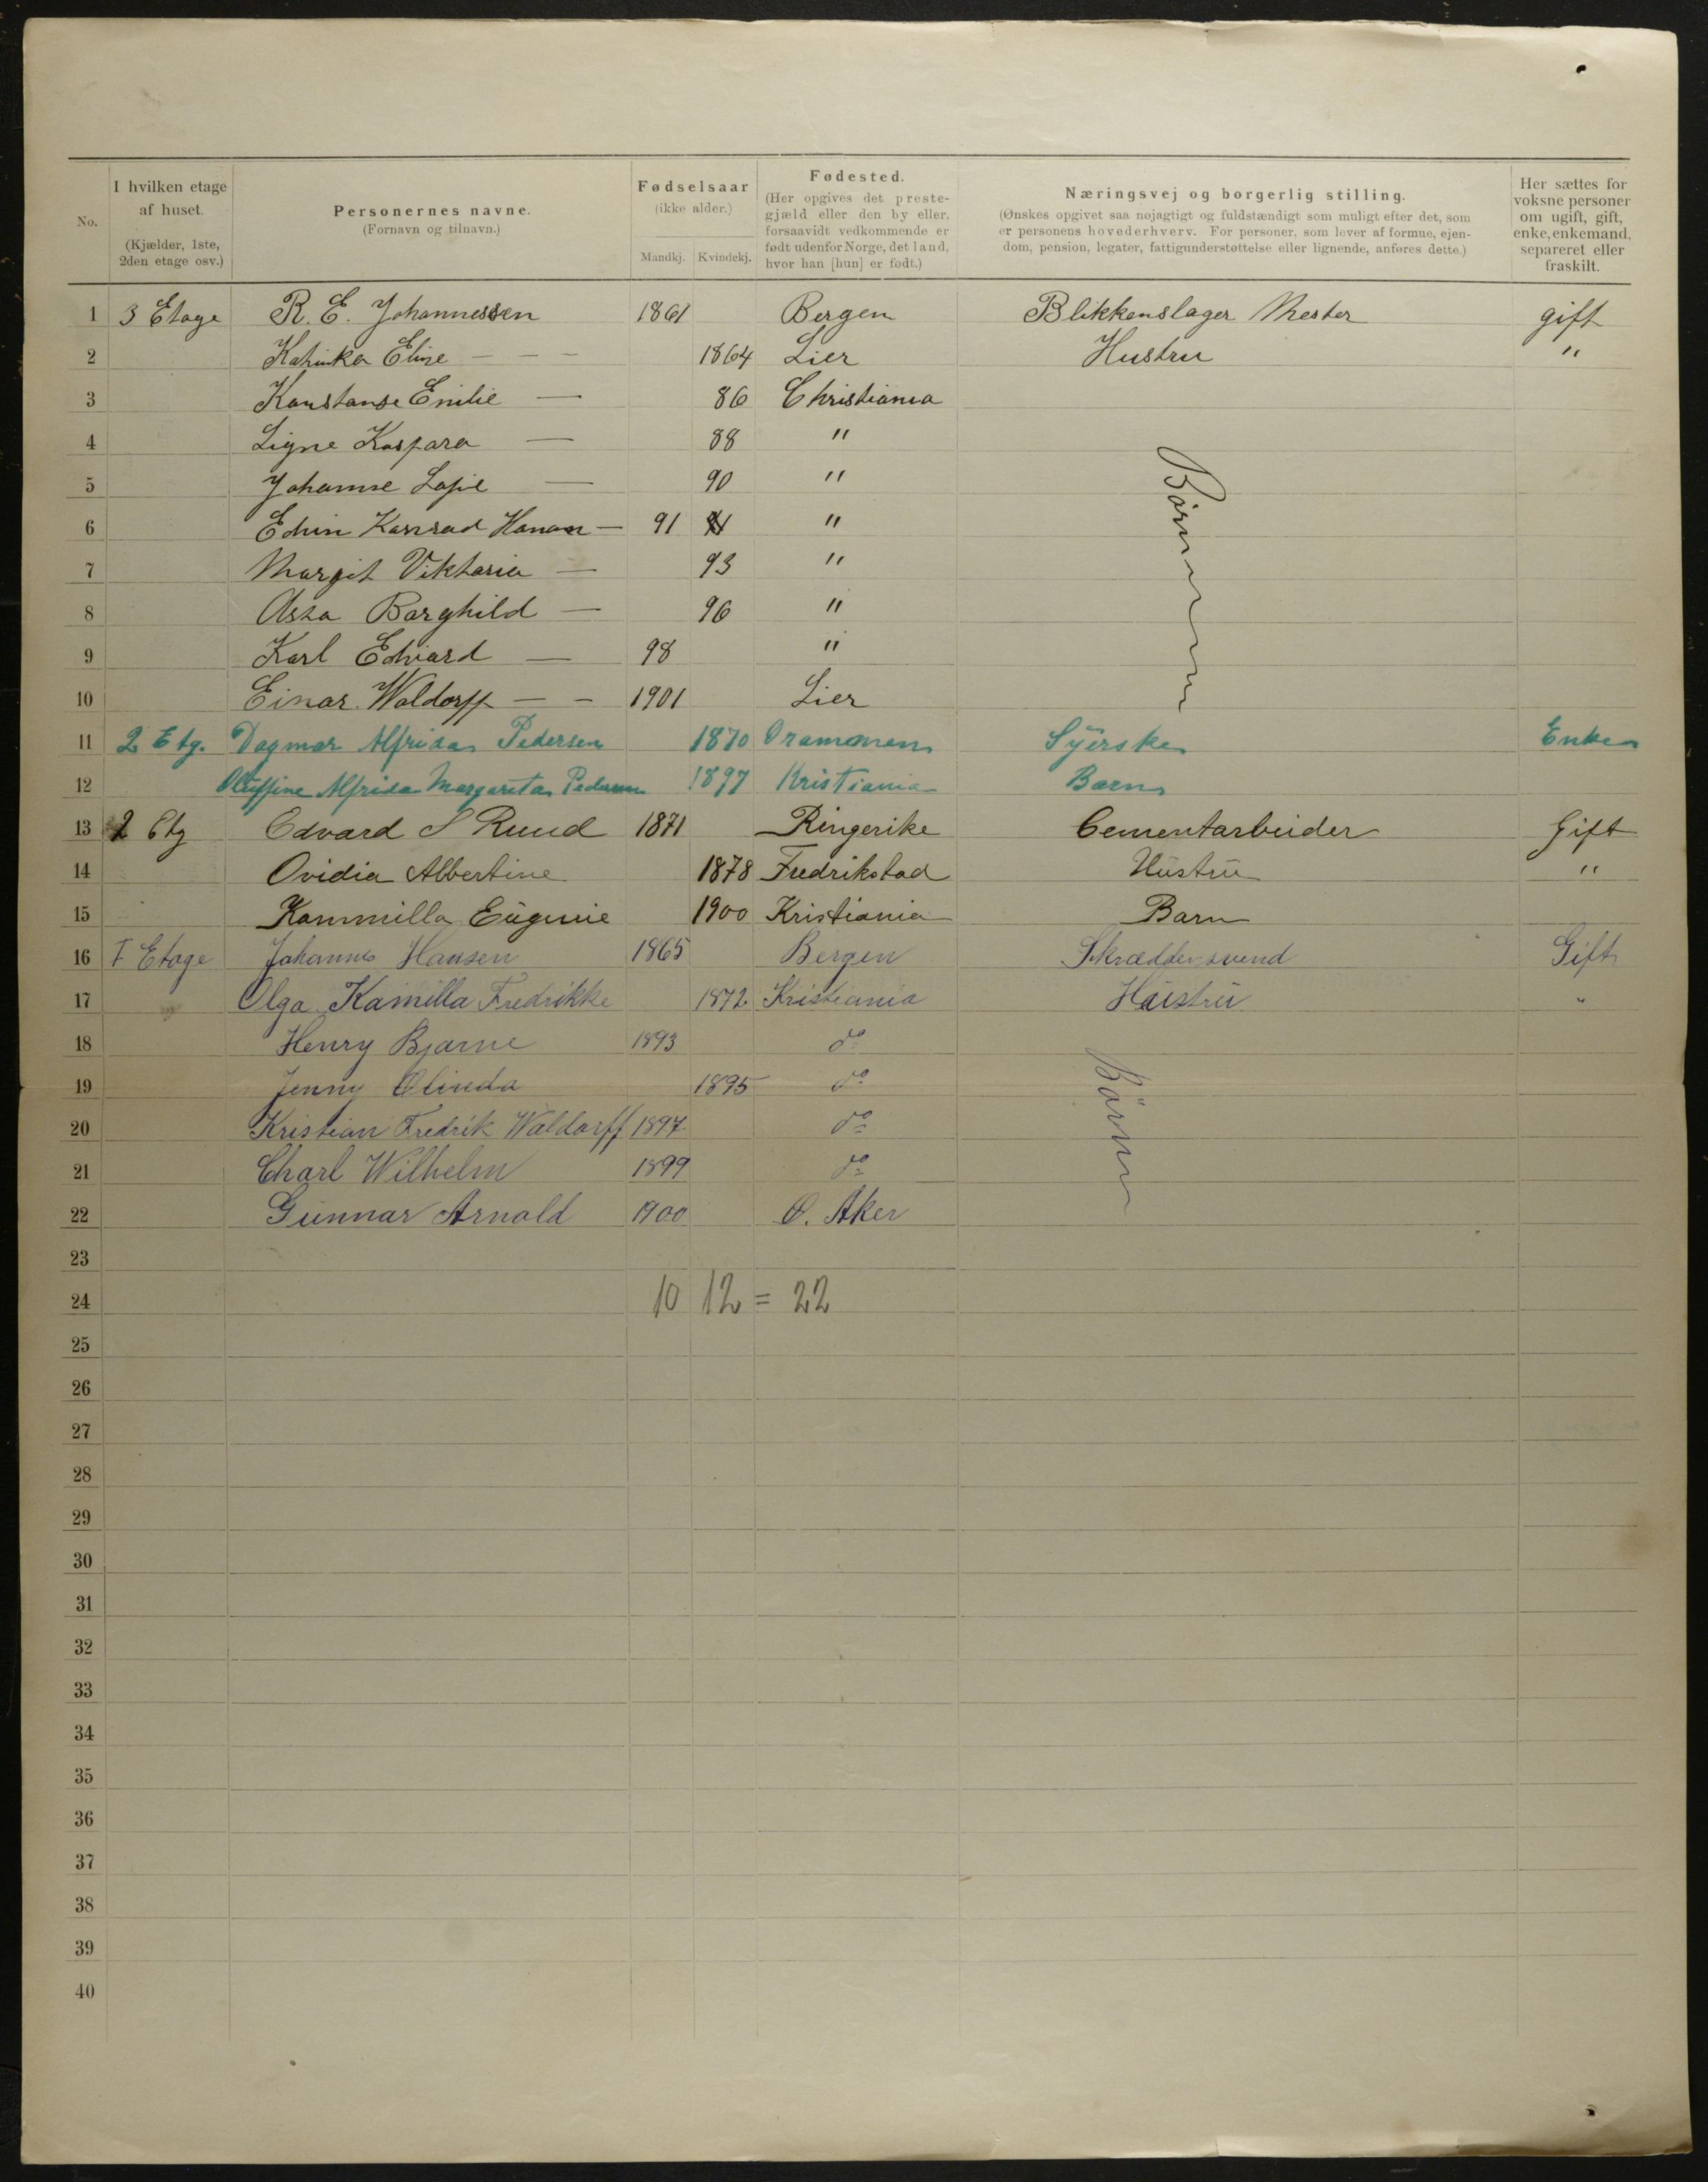 No.
I hvilken etage af huset. (Kjælder, 1ste, 2den etage osv.)
Personernes navne. (Fornavn og tilnavn.)
Fødselsaar (ikke alder.) Mandkj. Kvindekj.
Fødested. (Her opgives det prestegjæld eller den by eller, forsaavidt vedkommende er født udenfor Norge, det land, hvor han [hun] er født.)
Næringsvej og borgerlig stilling. (Ønskes opgivet saa nøjagtigt og fuldstændigt som muligt efter det, som er personens hovederhverv. For personer, som lever af formue, ejendom, pension, legater, fattigunderstøttelse eller lignende, anføres dette.)
Her sættes for voksne personer om ugift, gift, enke, enkemand, separeret eller fraskilt.
1 3 Etage R. E. Johannessen 1861 Bergen Blikkenslager Mester gift
2 Katinka Eline — — — 1864 Lier Hustru "
3 Konstanse Emilie — 86 Christiania
4 Signe Kaspara — 88 "
5 Johanne Sofie — 90 "
6 Edvin Konrad — 91 "
7 Margit Viktoria — 93 "
8 Assa Borghild — 96 "
9 Karl Edvard — 98 "
10 Einar Waldorff — — 1901 Lier
Børn
11 2 Etg. Dagmar Alfrida Pedersen 1870 Drammen Syerske Enke
12 Oluffine Alfrida Margareta Pedersen 1897 Kristiania Barn
13 2 Etg Edvard S Ruud 1871 Ringerike Cementarbeider Gift
14 Ovidia Albertine 1878 Fredrikstad Hustru "
15 Kammilla Eugenie 1900 Kristiania Barn
16 I Etage Johannes Hansen 1865 Bergen Skræddersvend Gift
17 Olga Kamilla Fredrikke 1872 Kristiania Hustru "
18 Henry Bjarne 1893 do
19 Jenny Olinda 1895 do
20 Kristian Fredrik Waldorff 1897 do
21 Charl Wilhelm 1899 do
22 Gunnar Arnold 1900 Ø. Aker
Børn
23
24 10 12 = 22
25
26
27
28
29
30
31
32
33
34
35
36
37
38
39
40